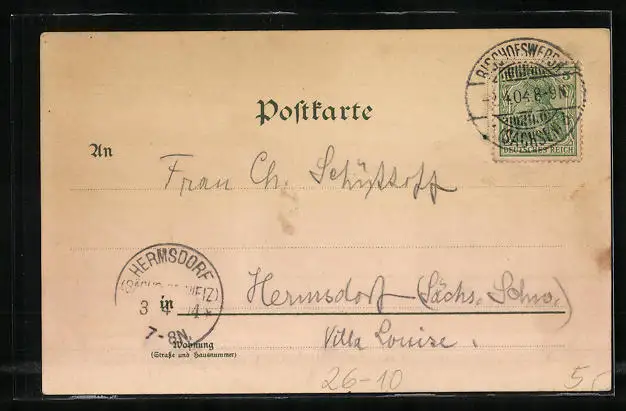 Postkarte
BISCHOFSWERDA
4.04.8-9N.
(SACHSEN)
DEUTSCHES REICH
An
Frau Ch.
HERMSDORF
3 4 04
7-8N.
in
Hermsdorf (Sächs. Schw.)
Villa Louise.
Wohnung
(Straße und Hausnummer)
26-10